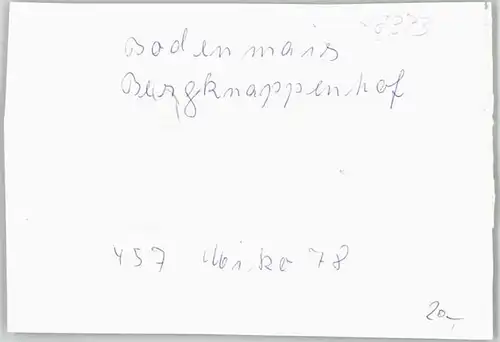 Bodenmais
Bergknappenhof
457 Mirko 78
20,-